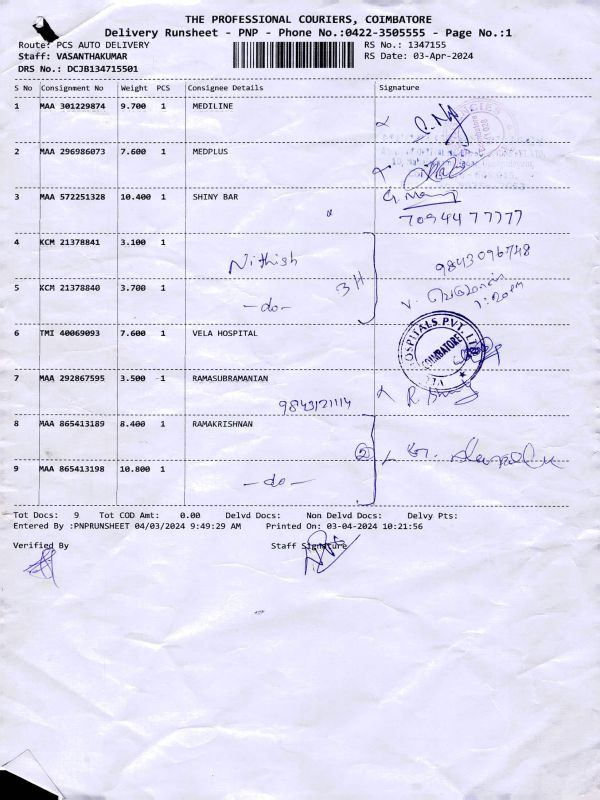 THE PROFESSIONAL COURIERS, COIMBATORE
Delivery Runsheet - PNP - Phone No.:0422-3505555 - Page No.:1
Route: PCS AUTO DELIVERY RS No.: 1347155
Staff: VASANTHAKUMAR RS Date: 03-Apr-2024
DRS No.: DCJB134715501
S No Consignment No Weight PCS Consignee Details Signature
1 MAA 301229874 9.700 1 MEDILINE
2 MAA 296986073 7.600 1 MEDPLUS
3 MAA 572251328 10.400 1 SHINY BAR
7094477777
4 KCM 21378841 3.100 1 Nithish 9843096748
5 KCM 21378840 3.700 1 -do- 3H
1:20pm
6 TMI 40069093 7.600 1 VELA HOSPITAL
HOSPITALS PVT. LTD
COIMBATORE
7 MAA 292867595 3.500 -1 RAMASUBRAMANIAN
9843121114
8 MAA 865413189 8.400 1 RAMAKRISHNAN
2
9 MAA 865413198 10.800 1 -do-
Tot Docs: 9 Tot COD Amt: 0.00 Delvd Docs: Non Delvd Docs: Delvy Pts:
Entered By :PNPRUNSHEET 04/03/2024 9:49:29 AM Printed On: 03-04-2024 10:21:56
Verified By Staff Signature